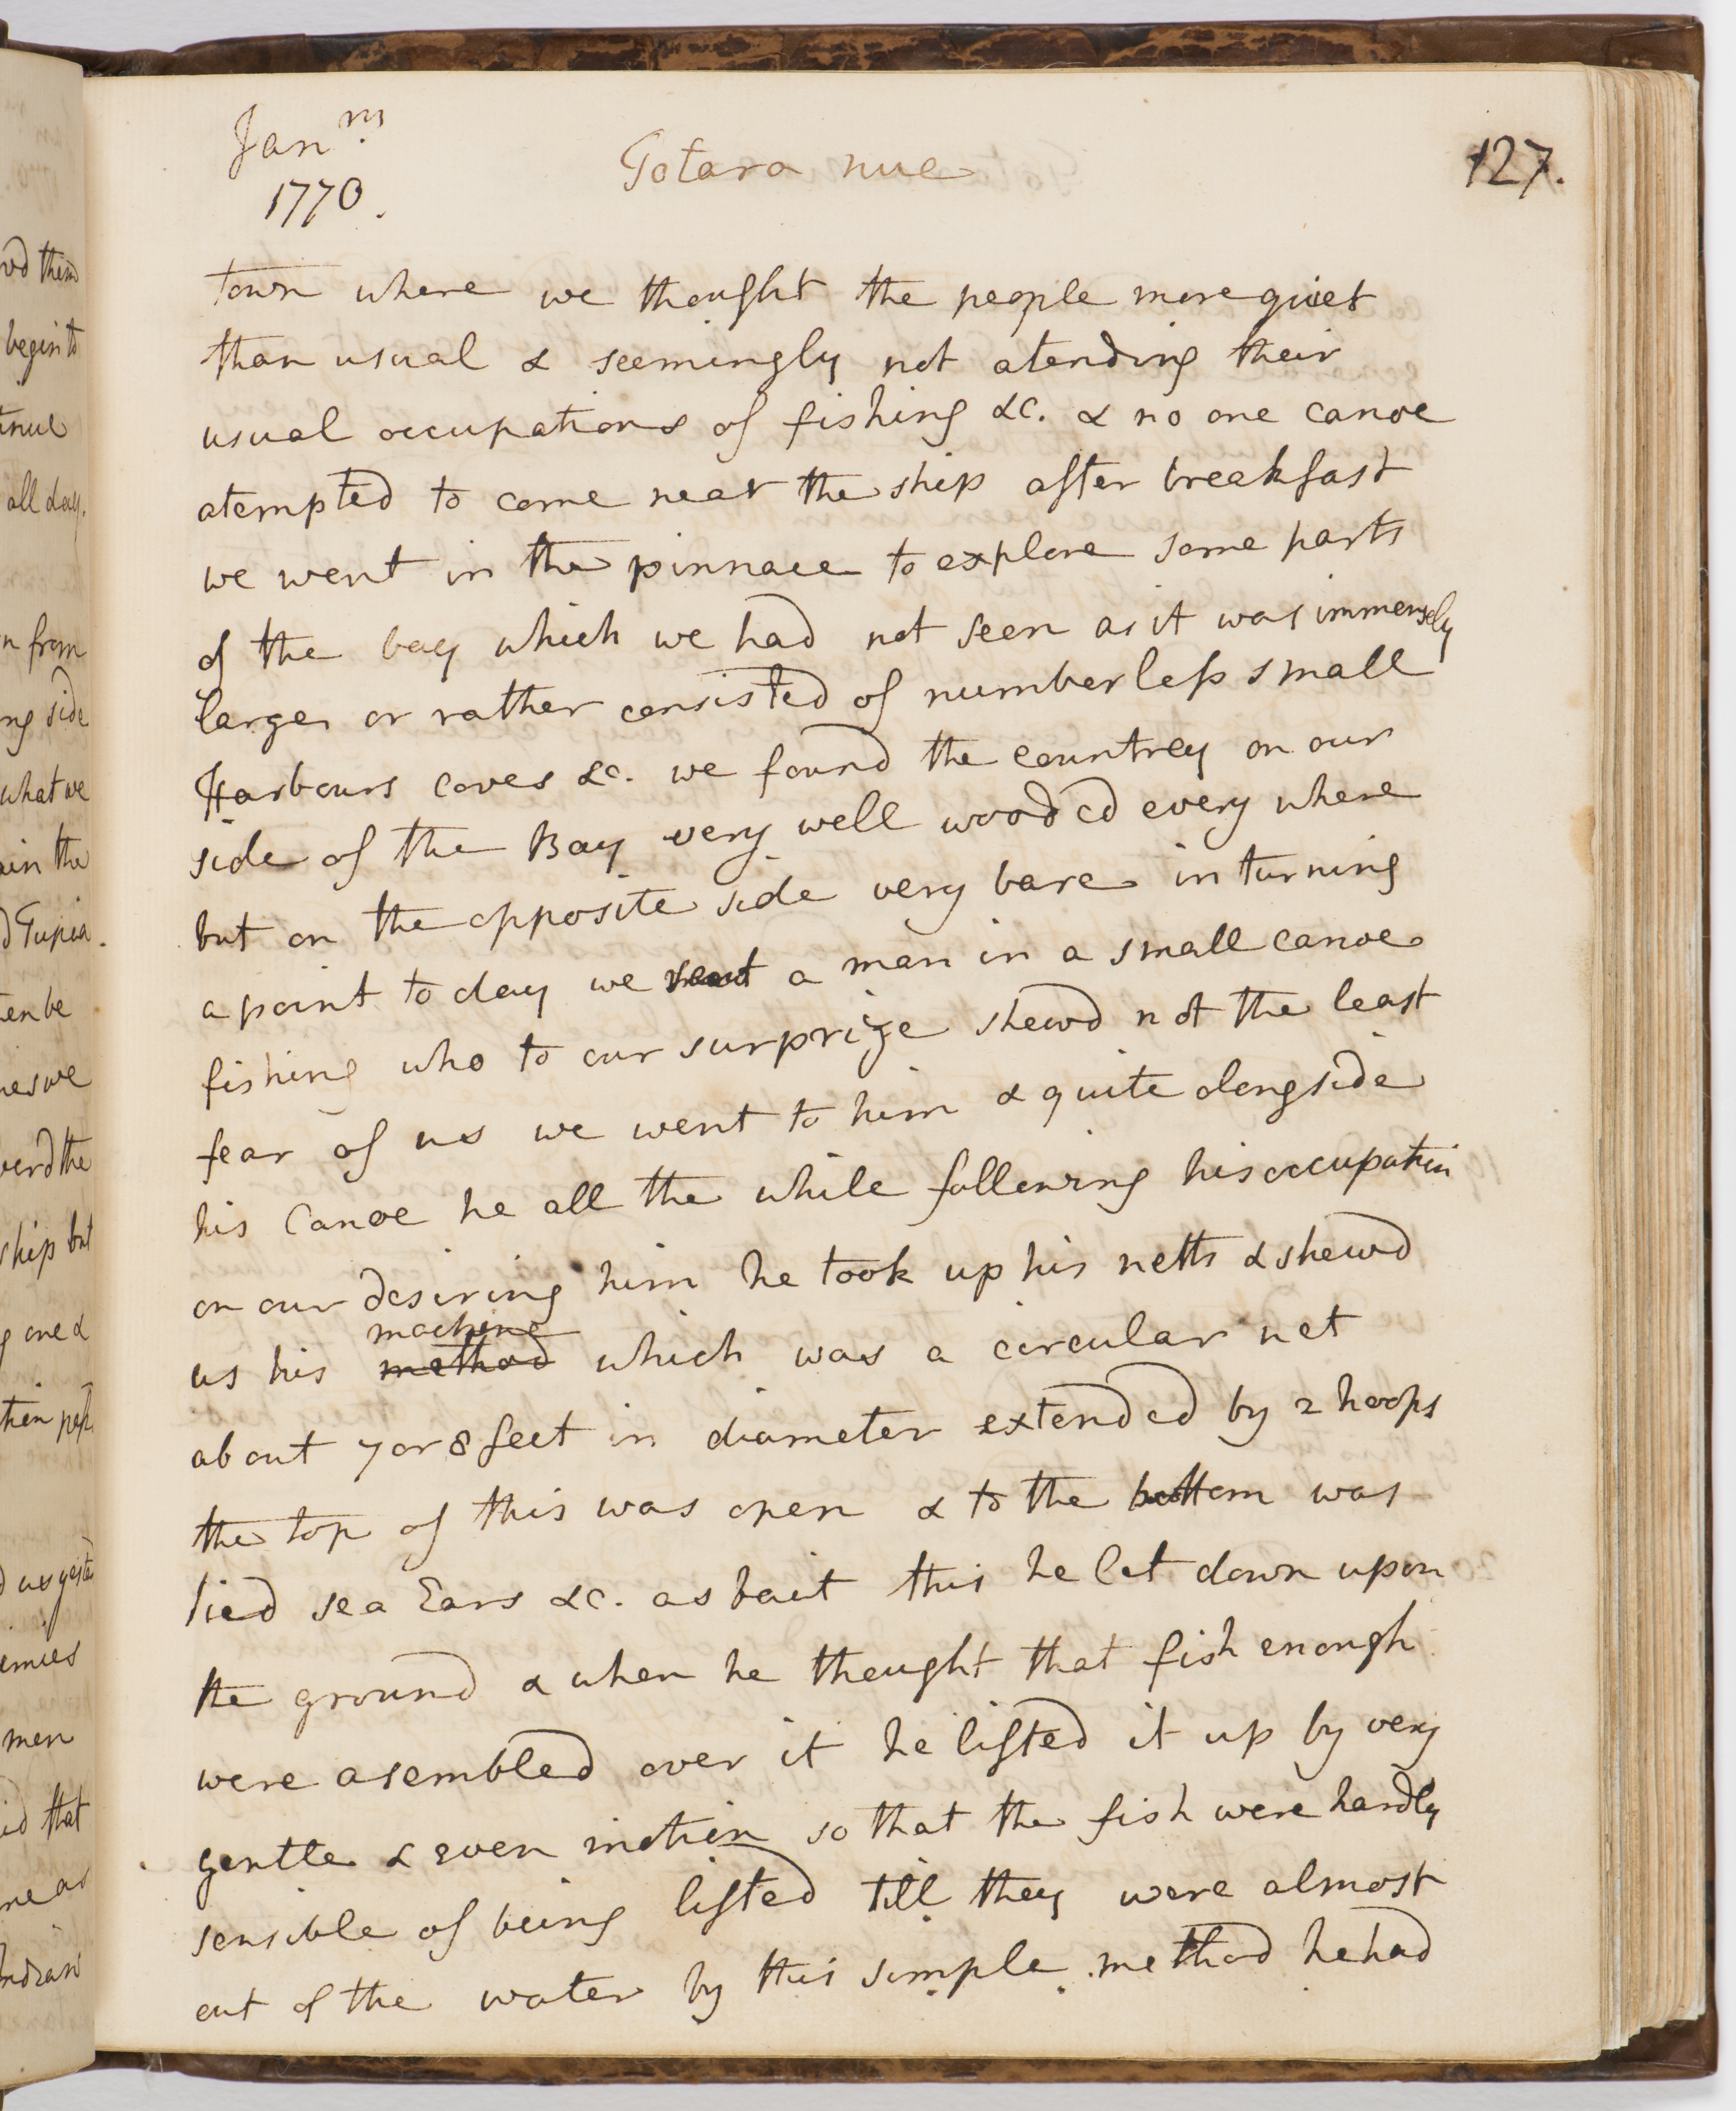 Jan.ry
1770.
Totara nue
127.
town where we thought the people more quiet
than usual & seemingly not atending their
usual occupations of fishing &c. & no one canoe
atempted to come near the ship after breakfast
we went in the pinnace to explore some parts
of the bay which we had not seen as it was immensely
large, or rather consisted of numberless small
Harbours coves &c. we found the countrey on our
side of the Bay very well wooded every where
but on the opposite side very bare in turning
a point to day we a man in a small canoe
fishing who to our surprize shewd not the least
fear of us we went to him & quite alongside
his Canoe he all the while following his occupation
on our desiring him he took up his netts & shewd
machine
us his method which was a circular net
about 7 or 8 feet in diameter extended by 2 hoops
the top of this was open & to the bottom was
tied sea Ears &c. as bait this he let down upon
the ground & when he thought that fish enough
were asembled over it he lifted it up by very
gentle & even motion so that the fish were hardly
sensible of being lifted till they were almost
out of the water by this simple method he had
vd them
begin to
all day.
n from
ng side
what we
ain the
d Tupia
ten be
nes we
verd the
ship but
g one &
men
id that
ne as
Indian